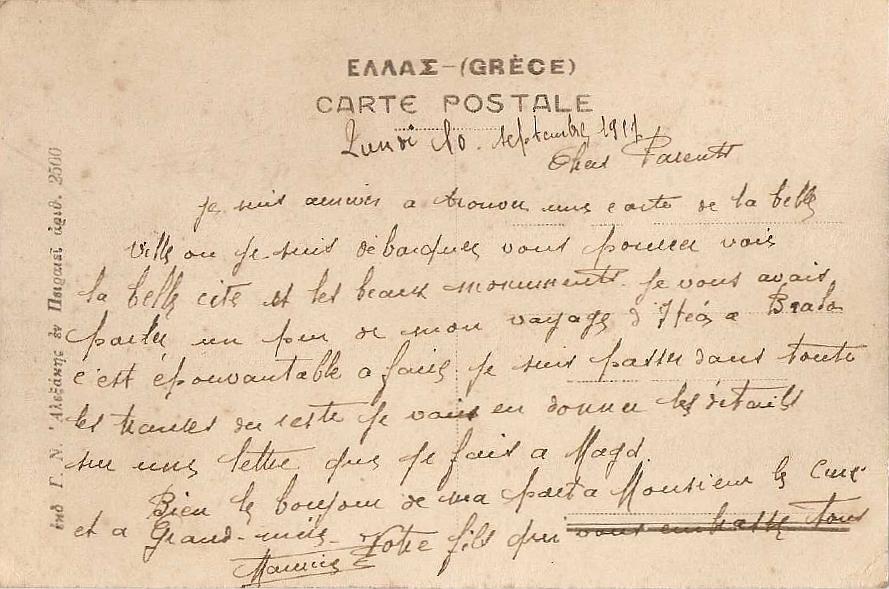 ΕΛΛΑΣ-(GRÈCE)
CARTE POSTALE
Lundi 10. septembre 1917
Chers Parents
je suis arriver a trouver une carte de la belle
ville ou je suis débarquer vous pouvez voir
la belle cité et les beaux monuments. je vous avais
parler un peu de mon voyage d'Itéa a Bralo
c'est épouvantable a faire je suis passer dans toute
les transes du reste je vais en donner les détails
sur une lettre que je fais a Magd.
Bien le bonjour de ma part a Monsieur le Curé
et a Grand-mère. Votre fils qui vous embrasse tous
Maurice
ἐκδ Γ. Ν. Ἀλεξάκης ἐν Πειραιεῖ ἀριθ. 2500